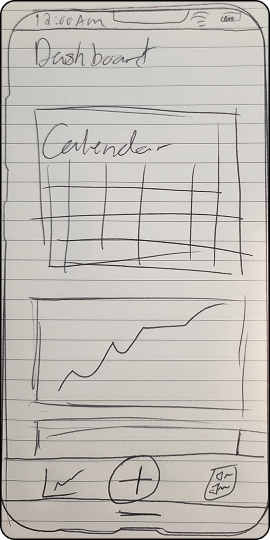 12:00AM
Dashboard
Calendar